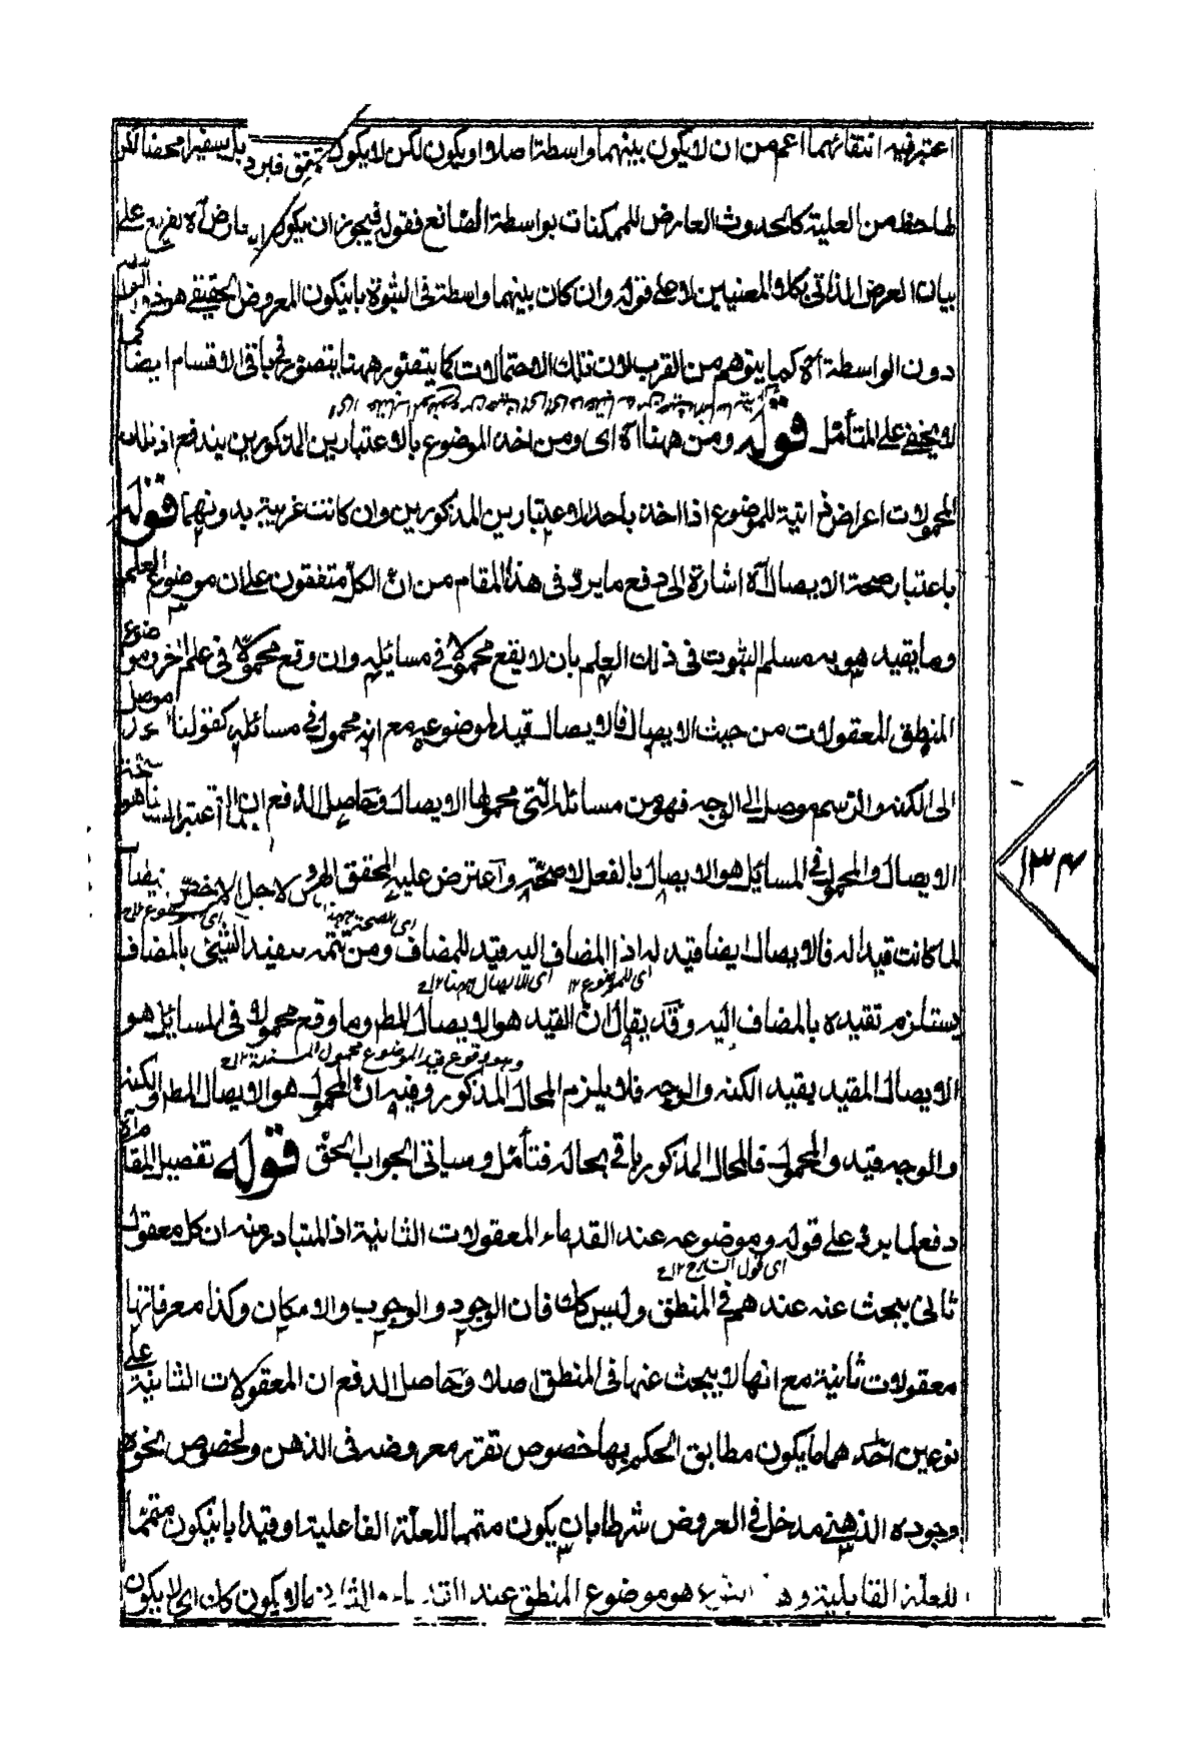 اعتبر فيه انتفائهما اعم من ان لا يكون بينهما واسطة اصلا او يكون لكن لا يكون بل سفيرا محضا لكن
لها حظ من العلية كالحدوث العارض للممكنات بواسطة الصانع فقوله فيجوز ان يكون عارض آه تفريع على
بيان العرض الذاتي بكلا المعنيين لا على قوله وان كان بينهما واسطة في الثبوت بان يكون المعروض الحقيقي هو ذو الواسطة
دون الواسطة آه كما يتوهم من القرب لان تلك الاحتمالات كما يتصور ههنا يتصور في باقي الاقسام ايضا كما
لا يخفى على المتأمل قوله ومن ههنا آه اي ومن اخذ الموضوع بالاعتبارين المذكورين يندفع اذ تلك
المحمولات اعراض ذاتية للموضوع اذا اخذ باحد الاعتبارين المذكورين وان كانت غريبة بدونهما قوله
باعتبار صحة الايصال آه اشارة الى دفع ما يرد في هذا المقام من ان الكل متفقون على ان موضوع العلم
وما يقيد هو به مسلم الثبوت في ذلك العلم بان لا يقع محمولا في مسائله وان وقع محمولا في علم اخر وموضوع
المنطق المعقولات من حيث الايصال فالايصال قيد لموضوعه مع انه محمول في مسائله كقولنا الحد موصل
الى الكنه والرسم موصل الى الوجه فهو من مسائله التي محمولها الايصال وحاصل الدفع ان ما اعتبر ههنا هو صحة
الايصال والمحمول في المسائل هو الايصال بالفعل لا صحته واعترض عليه المحقق الهروي لاجل الاخصر ايضا
لما كانت قيدا له فالايصال ايضا قيد له اذ المضاف اليه قيد للمضاف ومن ثمه تقييد الشيء بالمضاف
اي للموضوع ١٢ اي الايصال ههنا ١٢
يستلزم تقيده بالمضاف اليه وقد يقال ان القيد هو الايصال المطلق وما وقع محمولا في المسائل هو
وهو وقوع قيد الموضوع محمول المسئلة ١٢
الايصال المقيد بقيد الكنه والوجه فلا يلزم المحال المذكور وفيه ان المحمول هو الايصال المطلق والكنه
والوجه قيد والمحمول فالمحال المذكور باق بحاله فتأمل وسيأتي الجواب الحق قوله تفصيل المقام آه
دفع لما يرد على قوله وموضوعه عند القدماء المعقولات الثانية اذ المتبادر منه ان كل معقول
اي قول الشارح ١٢
ثاني يبحث عنه عندهم في المنطق وليس كك فان الوجود والوجوب والامكان وكذا معرفاتها
معقولات ثانية مع انها لا يبحث عنها في المنطق اصلا وحاصل الدفع ان المعقولات الثانية على
نوعين احدهما ما يكون مطابق الحكم بها خصوص تقرر معروضه في الذهن ولخصوص نحو
وجوده الذهني مدخل في العروض شرطا بان يكون متمما للعلة الفاعلية او قيدا بان يكون متمما
للعلة القابلية وهو موضوع المنطق عند القدماء والثاني ما لا يكون كك اي لا يكون
١٣٤